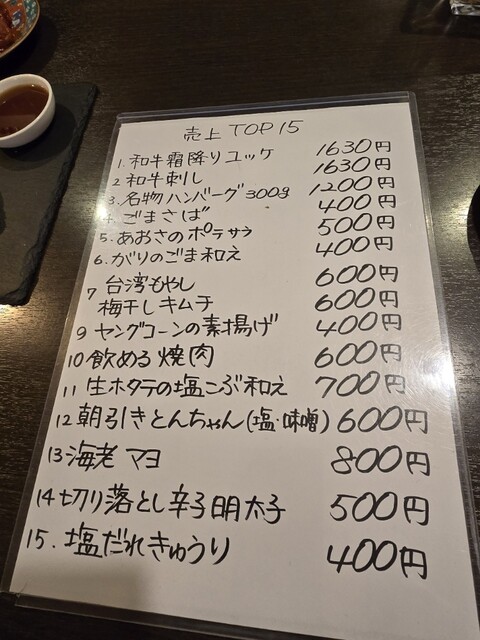 売上 TOP15
1. 和牛霜降りユッケ 1630円
2 和牛刺し 1630円
3. 名物ハンバーグ300g 1200円
4. ごまさば 400円
5. あおさのポテサラ 500円
6. がりのごま和え 400円
7 台湾もやし 600円
梅干しキムチ 600円
9 ヤングコーンの素揚げ 400円
10 飲める焼肉 600円
11 生ホタテの塩こぶ和え 700円
12 朝引きとんちゃん(塩・味噌) 600円
13 海老マヨ 800円
14 切り落とし辛子明太子 500円
15. 塩だれきゅうり 400円